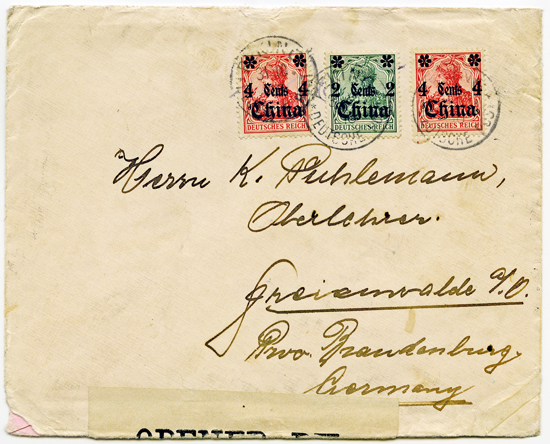 4 Cents 4
China
DEUTSCHES REICH
2 Cents 2
China
DEUTSCHES REICH
4 Cents 4
China
DEUTSCHES REICH
Herrn K. Puhlemann,
Oberlehrer.
Freienwalde a/O.
Prov. Brandenburg.
Germany
OPENED BY